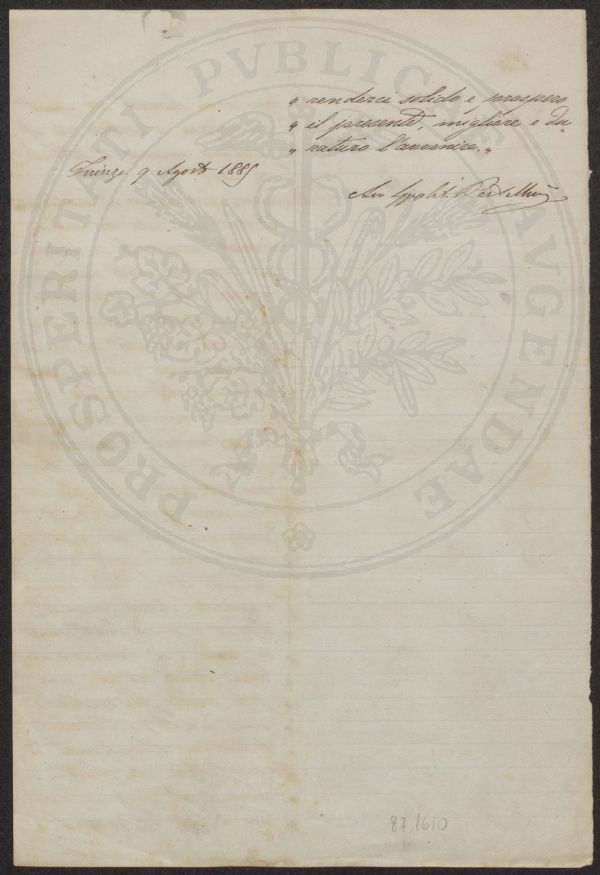 „ renderci solido e prospero
„ il presente, migliore e du-
„ raturo l'avvenire. „
Firenze 9 Agosto 1885
Avv
87.1610
PROSPERITATI PVBLICAE AVGENDAE